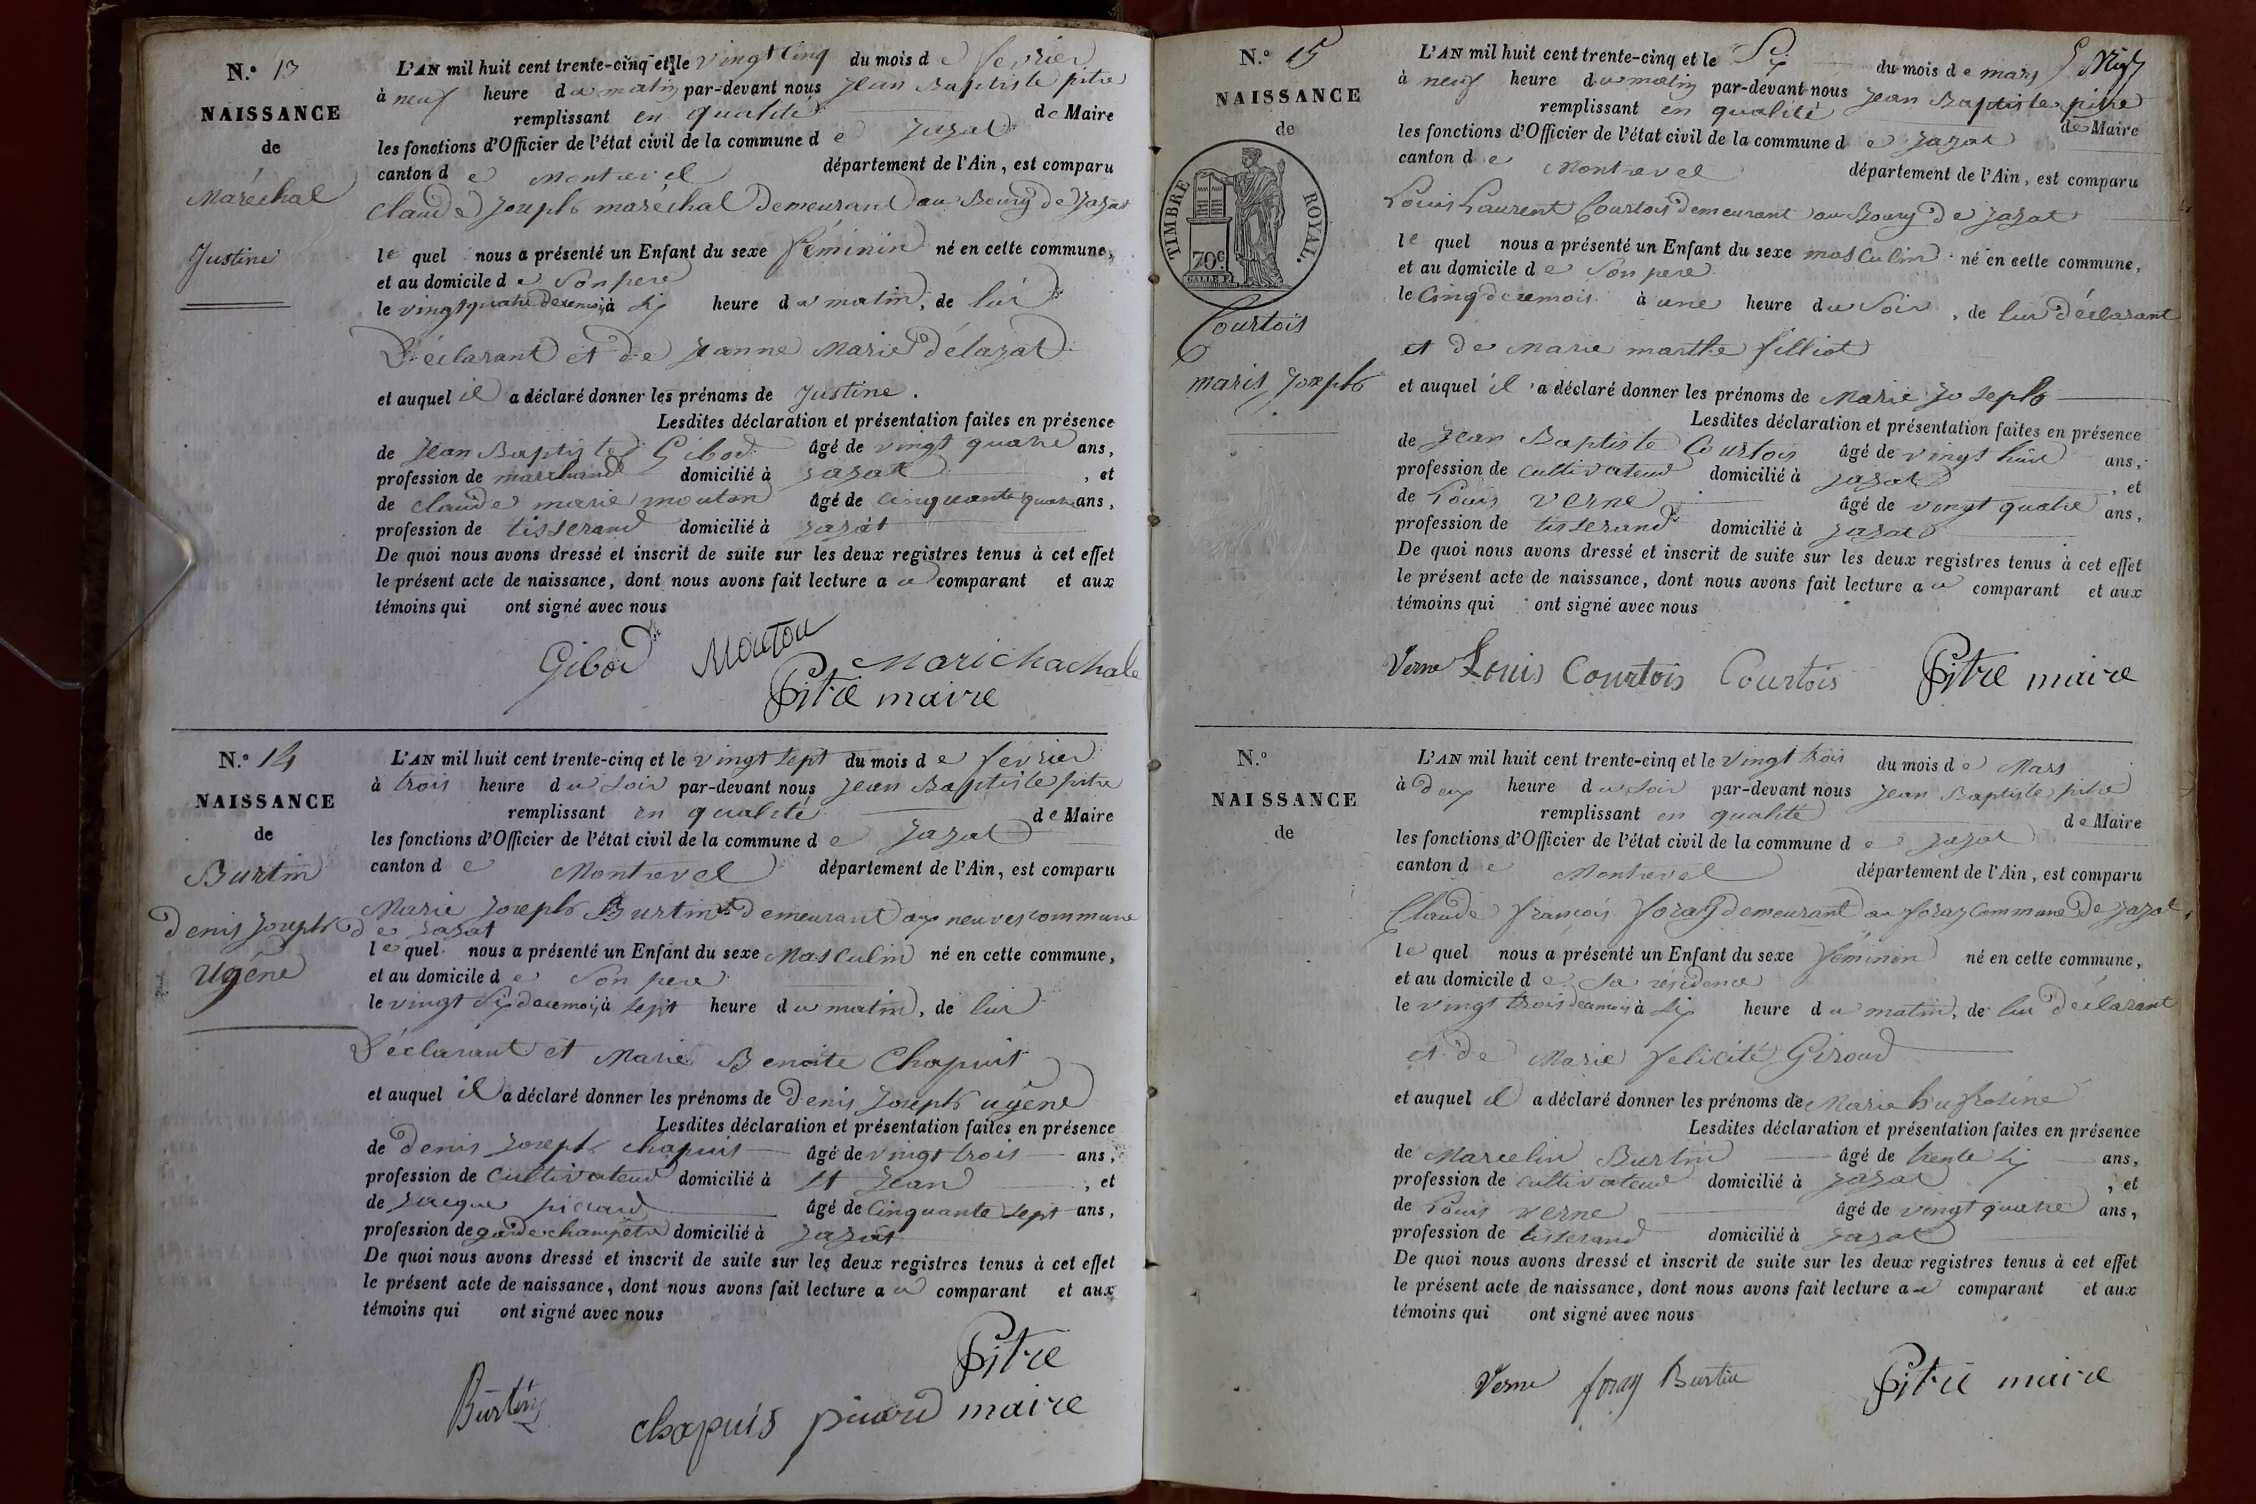 N.° 13
NAISSANCE
de
Maréchal
Justine
L'AN mil huit cent trente-cinq et le vingt Cinq du mois de fevrier
à neuf heure du matin par-devant nous Jean Baptiste pitre
remplissant en qualité de Maire
les fonctions d'Officier de l'état civil de la commune de Jazat
canton de Montrevel département de l'Ain, est comparu
claude Joseph maréchal Demeurant au Bourg de Jazat
le quel nous a présenté un Enfant du sexe féminin né en cette commune,
et au domicile de Son pere
le vingt quatre de ce mois à Six heure du matin, de lui
Déclarant et de Jeanne Marie délazat
et auquel il a déclaré donner les prénoms de Justine.
Lesdites déclaration et présentation faites en présence
de Jean Baptiste Gibod âgé de vingt quatre ans,
profession de marchand domicilié à Jazat, et
de claude marie mouton âgé de cinquante quatre ans,
profession de tisserand domicilié à Jazat
De quoi nous avons dressé et inscrit de suite sur les deux registres tenus à cet effet
le présent acte de naissance, dont nous avons fait lecture au comparant et aux
témoins qui ont signé avec nous
Gibod Mouton Marichachale
Pitre maire
N.° 14
NAISSANCE
de
Burtin
Denis Joseph
Ugêne
L'AN mil huit cent trente-cinq et le vingt Sept du mois de février
à trois heure du Soir par-devant nous Jean Baptiste pitre
remplissant en qualité de Maire
les fonctions d'Officier de l'état civil de la commune de Jazat
canton de Montrevel département de l'Ain, est comparu
Marie Joseph Burtin demeurant aux neuves commune
de Jazat
le quel nous a présenté un Enfant du sexe Masculin né en cette commune,
et au domicile de Son pere
le vingt Six de ce mois à Sept heure du matin, de lui
Déclarant et Marie Benoite Chapuit
et auquel il a déclaré donner les prénoms de Denis Joseph ugêne
Lesdites déclaration et présentation faites en présence
de Denis Joseph chapuis âgé de vingt trois ans,
profession de Cultivateur domicilié à St Jean, et
de Jacque picard âgé de Cinquante Sept ans,
profession de garde champêtre domicilié à Jazat
De quoi nous avons dressé et inscrit de suite sur les deux registres tenus à cet effet
le présent acte de naissance, dont nous avons fait lecture au comparant et aux
témoins qui ont signé avec nous
Pitre
Burtin chapuis picard maire
N.° 15
NAISSANCE
de
TIMBRE ROYAL.
70c
Courtois
marie Joseph
L'AN mil huit cent trente-cinq et le Six du mois de mars
à neuf heure du matin par-devant nous Jean Baptiste pitre
remplissant en qualité de Maire
les fonctions d'Officier de l'état civil de la commune de Jazat
canton de Montrevel département de l'Ain, est comparu
Louis Laurent Courtois demeurant au Bourg de Jazat
le quel nous a présenté un Enfant du sexe masculin né en cette commune,
et au domicile de Son pere
le Cinq de ce mois à une heure du Soir, de lui déclarant
et de Marie marthe filliot
et auquel il a déclaré donner les prénoms de Marie Joseph
Lesdites déclaration et présentation faites en présence
de Jean Baptiste Courtois âgé de vingt huit ans,
profession de cultivateur domicilié à Jazat, et
de Louis Verne âgé de vingt quatre ans,
profession de tisserand domicilié à Jazat
De quoi nous avons dressé et inscrit de suite sur les deux registres tenus à cet effet
le présent acte de naissance, dont nous avons fait lecture au comparant et aux
témoins qui ont signé avec nous
Verne Louis Courtois Courtois Pitre maire
N.°
NAISSANCE
de
L'AN mil huit cent trente-cinq et le vingt trois du mois de Mars
à Deux heure du Soir par-devant nous Jean Baptiste pitre
remplissant en qualité de Maire
les fonctions d'Officier de l'état civil de la commune de Jazat
canton de Montrevel département de l'Ain, est comparu
Claude françois foray demeurant au foray Commune de Jazat
le quel nous a présenté un Enfant du sexe féminin né en cette commune,
et au domicile de Sa résidence
le vingt trois de ce mois à Six heure du matin, de lui déclarant
et de Marie felicité Giroud
et auquel il a déclaré donner les prénoms de Marie
Lesdites déclaration et présentation faites en présence
de Marcelin Burtin âgé de trente Six ans,
profession de cultivateur domicilié à Jazat, et
de Louis verne âgé de vingt quatre ans,
profession de tisserand domicilié à Jazat
De quoi nous avons dressé et inscrit de suite sur les deux registres tenus à cet effet
le présent acte de naissance, dont nous avons fait lecture au comparant et aux
témoins qui ont signé avec nous
Verne foray Burtin Pitre maire